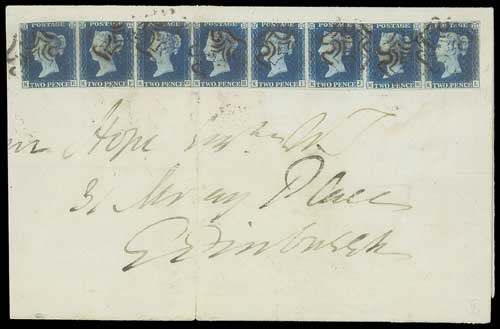 POSTAGE POSTAGE POSTAGE POSTAGE POSTAGE POSTAGE POSTAGE POSTAGE
TWO PENCE TWO PENCE TWO PENCE TWO PENCE TWO PENCE TWO PENCE TWO PENCE TWO PENCE
Hope
31 Moray Place
Edinburgh